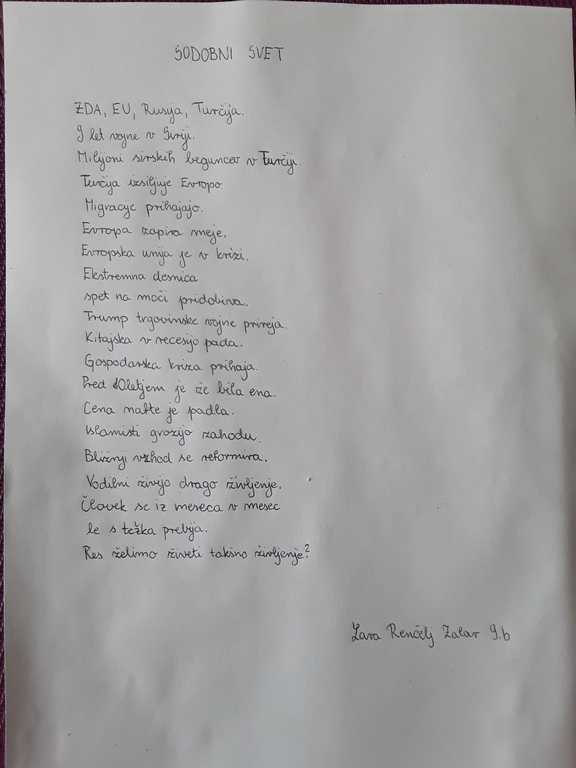 SODOBNI SVET
ZDA, EU, Rusija, Turčija.
9 let vojne v Siriji.
Milijoni sirskih beguncev v Turčiji.
Turčija izsiljuje Evropo.
Migracije prihajajo.
Evropa zapira meje.
Evropska unija je v krizi.
Ekstremna desnica
spet na moči pridobiva.
Trump trgovinske vojne prireja.
Kitajska v recesijo pada.
Gospodarska kriza prihaja.
Pred 10letjem je že bila ena.
Cena nafte je padla.
Islamisti grozijo zahodu.
Bližnji vzhod se reformira.
Vodilni živijo drago življenje.
Človek se iz meseca v mesec
le s težka prebija.
Res želimo živeti takšno življenje?
Zara Renčelj Zalar 9.b